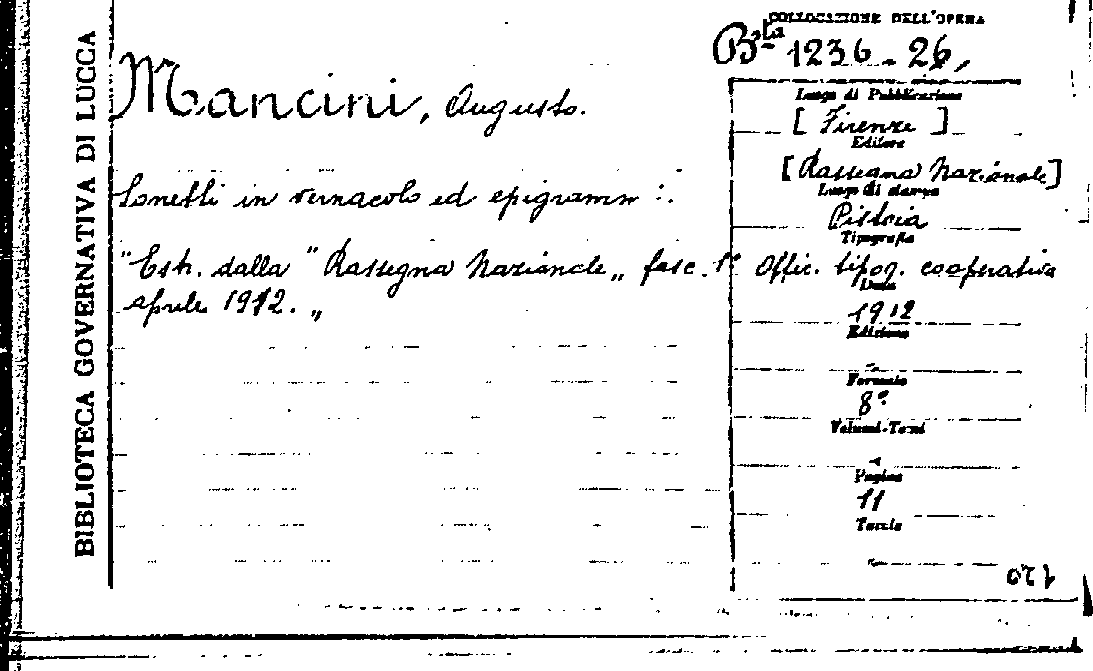 BIBLIOTECA GOVERNATIVA DI LUCCA
COLLOCAZIONE DELL'OPERA
Bta 1236-26,
Mancini, Augusto.
Sonetti in vernacolo ed epigrammi.
"Estr. dalla "Rassegna Nazionale„ fasc. 1°
aprile 1912.„
Luogo di Pubblicazione
[Firenze]
Editore
[Rassegna Nazionale]
Luogo di stampa
Pistoia
Tipografia
Offic. tipog. cooperativa
Data
1912
Edizione
Formato
8°
Volumi-Tomi
Pagine
11
Tavole
120